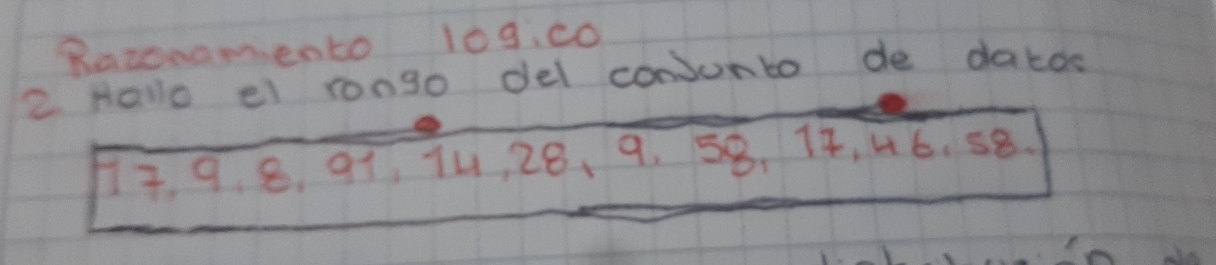 Razonamiento logico
2 Hallo el rango del conjunto de datos
17, 9, 8, 91, 14, 28, 9, 58, 17, 46, 58.